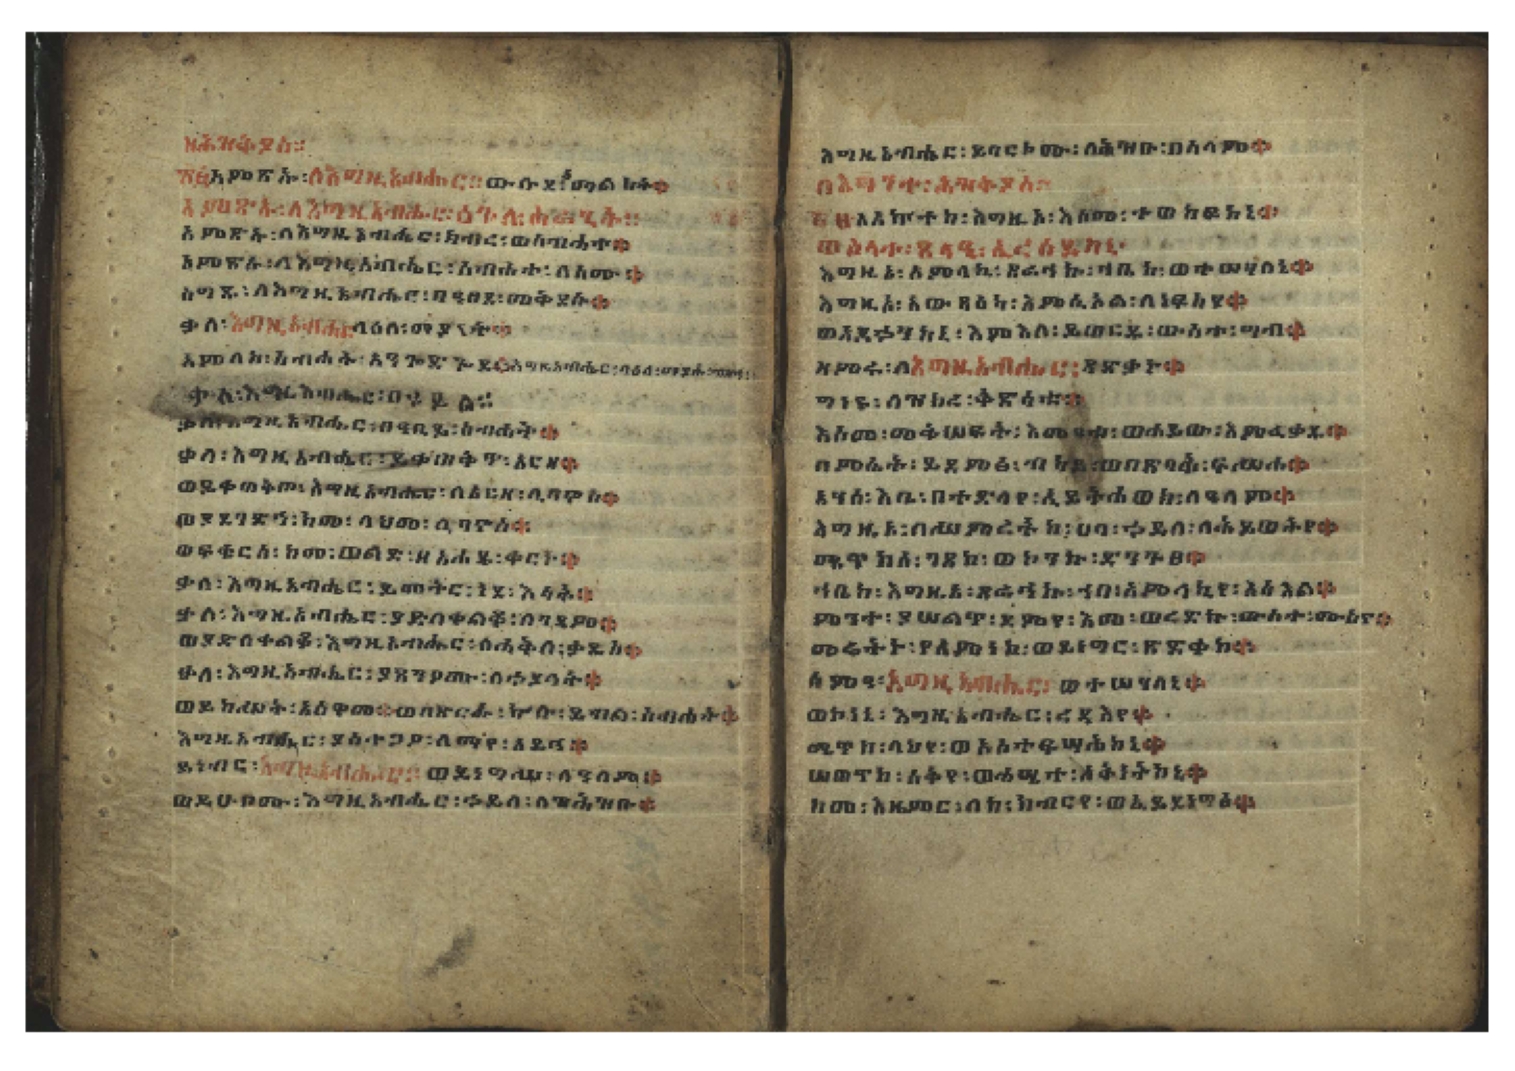 ዘሕዝቅያስ።
አምጽኡ፡ለእግዚአብሔር፡ ውሉደ፡አማልክት
አምጽኡ፡ለእግዚአብሔር፡ዕጓለ፡ሐራጊት።
አምጽኡ፡ለእግዚአብሔር፡ክብረ፡ወስብሐተ
አምጽኡ፡ለእግዚአብሔር፡ስብሐተ፡ለስሙ
ስግዱ፡ለእግዚአብሔር፡በዓፀደ፡መቅደሱ
ቃለ፡እግዚአብሔር፡ላዕለ፡ማያት
አምላከ፡ስብሐት፡አንጐድጐደ እግዚአብሔር፡ላዕለ፡ማያት፡
ቃለ፡እግዚአብሔር፡በኀይል።
ቃለ፡እግዚአብሔር፡በዓቢይ፡ስብሐት
ቃለ፡እግዚአብሔር፡ይቀጠቅጥ፡አርዘ
ወይቀጠቅጦ፡እግዚአብሔር፡ለአርዘ፡ሊባኖስ
ወያደገድጎ፡ከመ፡ላህመ፡ሊባኖስ
ወፍቁርሰ፡ከመ፡ወልድ፡ዘአሐዱ፡ቀርኑ
ቃለ፡እግዚአብሔር፡ይመትር፡ነደ፡እሳት
ቃለ፡እግዚአብሔር፡ያድለቀልቆ፡ለገዳም
ወያድለቀልቆ፡እግዚአብሔር፡ለሐቅለ፡ቃዴስ
ቃለ፡እግዚአብሔር፡ያጸንዖሙ፡ለኀያላት
ወይከሥት፡አዕዋመ ወበጽርሑ፡ኵሉ፡ይብል፡ስብሐት
እግዚአብሔር፡ያስተጋብኦ፡ለማየ፡አይኅ
ይነብር፡እግዚአብሔር፡ ወይነግሥ፡ለዓለም
ወይሁቦሙ፡እግዚአብሔር፡ኀይለ፡ለሕዝቡ
እግዚአብሔር፡ይባርኮሙ፡ለሕዝቡ፡በሰላም
በእንተ፡ሕዝቅያስ።
፳፱አሌዕለከ፡እግዚኦ፡እስመ፡ተወከፍከኒ
ወልሳተ፡ጸላዒ፡ኢረሰይከኒ
እግዚኦ፡አምላኪ፡ጸራኅኩ፡ኀቤከ፡ወተሠሃልከኒ
እግዚኦ፡አውጻእካ፡እምሲኦል፡ለነፍስየ
ወአድኀንከኒ፡እምእለ፡ይወርዱ፡ውስተ፡ግብ
ዘምሩ፡ለእግዚአብሔር፡ጻድቃኑ
ግነዩ፡ለዝክረ፡ቅድሳቱ
እስመ፡መቅሠፍት፡እመዓቱ፡ወሐይው፡እምፈቃዱ
በምሴት፡ይደምፅ፡ብካይ፡ወበጽባሕ፡ፍሥሐ
አንሰ፡እቤ፡በትድላየ፡ኢይትሐወክ፡ለዓለም
እግዚኦ፡በሥምረትከ፡ሀባ፡ኀይለ፡ለሕይወትየ
ሜጥከሰ፡ገጸከ፡ወኮንኩ፡ድንጉፀ
ኀቤከ፡እግዚኦ፡ጸራኅኩ፡ኀበ፡አምላኪየ፡እስእል
ምንተ፡ያሤልጥ፡ደምየ፡እመ፡ወረድኩ፡ውስተ፡ሙስና
መሬትኑ፡የአምነከ፡ወይነግር፡ጽድቀከ
ሰምዐ፡እግዚአብሔር፡ ወተሠሃለኒ
ወኮነኒ፡እግዚአብሔር፡ረዳእየ
ሜጥከ፡ላህየ፡ወአስተፍሣሕከኒ
ሠጠጥከ፡ሠቅየ፡ወሐሤተ፡አቅነትከኒ
ከመ፡እዘምር፡ለከ፡ክብርየ፡ወኢይደነግፅ